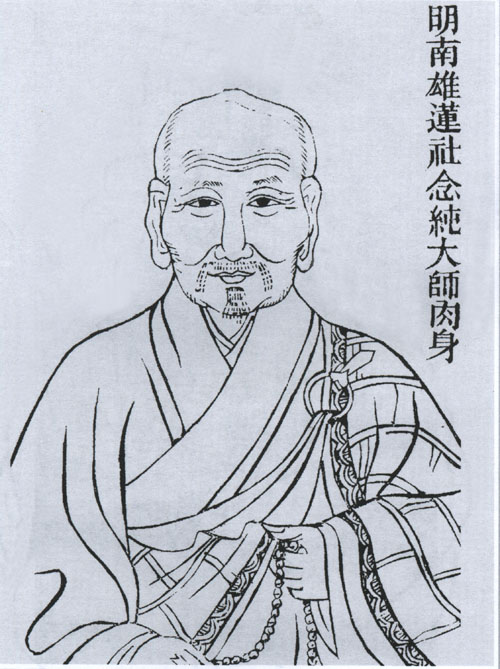 明南雄蓮社念純大師肉身